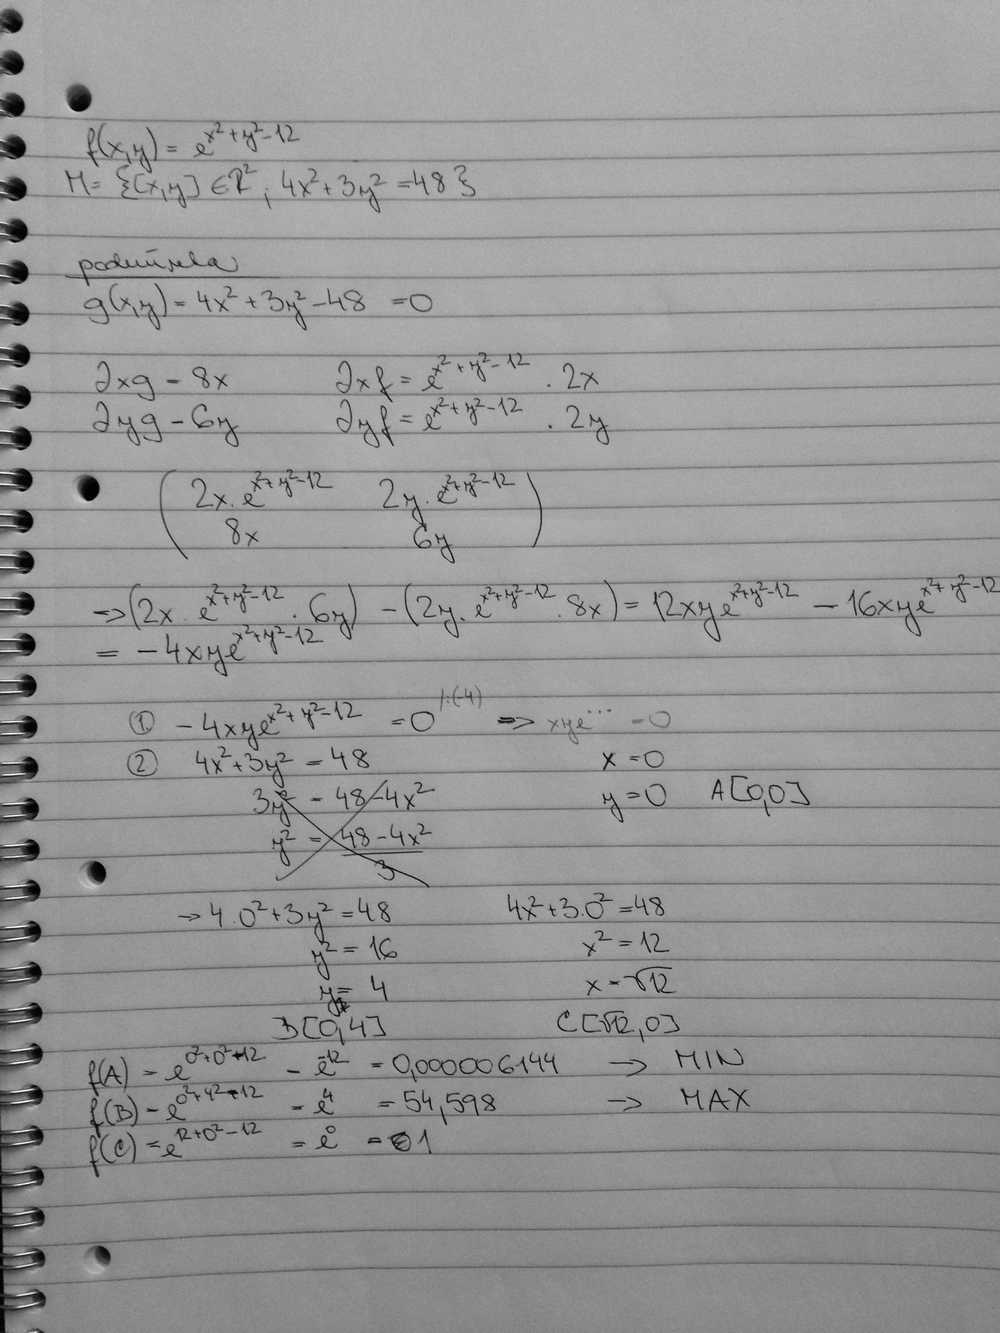 f(x,y) = e^{x²+y²-12}
M = {[x,y] ∈ R² ; 4x²+3y² = 48}
podmínka
g(x,y) = 4x² + 3y² - 48 = 0
∂xg = 8x ∂xf = e^{x²+y²-12} · 2x
∂yg = 6y ∂yf = e^{x²+y²-12} · 2y
( 2x·e^{x²+y²-12} 2y·e^{x²+y²-12} )
8x 6y
→ (2x·e^{x²+y²-12} · 6y) - (2y·e^{x²+y²-12} · 8x) = 12xye^{x²+y²-12} - 16xye^{x²+y²-12}
= -4xye^{x²+y²-12}
① -4xye^{x²+y²-12} = 0 /:(-4) => xye^{...} = 0
② 4x²+3y² = 48 x = 0
3y² = 48-4x² y = 0 A[0,0]
y² = \frac{48-4x²}{3}
→ 4·0²+3y² = 48 4x²+3·0² = 48
y² = 16 x² = 12
y = 4 x = √12
B[0,4] C[√12,0]
f(A) = e^{0²+0²-12} = e^{-12} = 0,000006144 → MIN
f(B) = e^{0²+4²-12} = e⁴ = 54,598 → MAX
f(C) = e^{12+0²-12} = e⁰ = 1